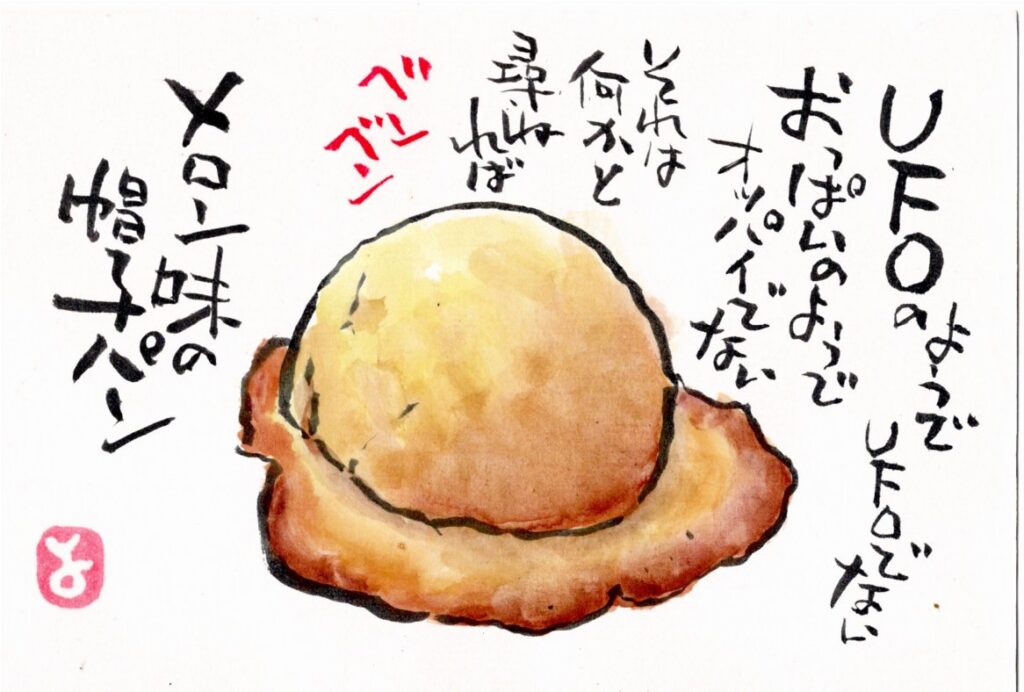 UFOのようで
UFOでない
おっぱいのようで
オッパイでない
それは
何かと
尋ねれば
ベンベン
メロン味の
帽子パン
よ